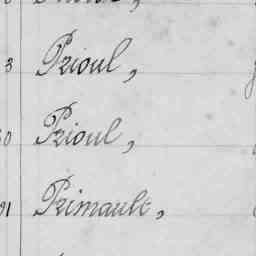 3 Prioul,
0 Prioul,
91 Primault,